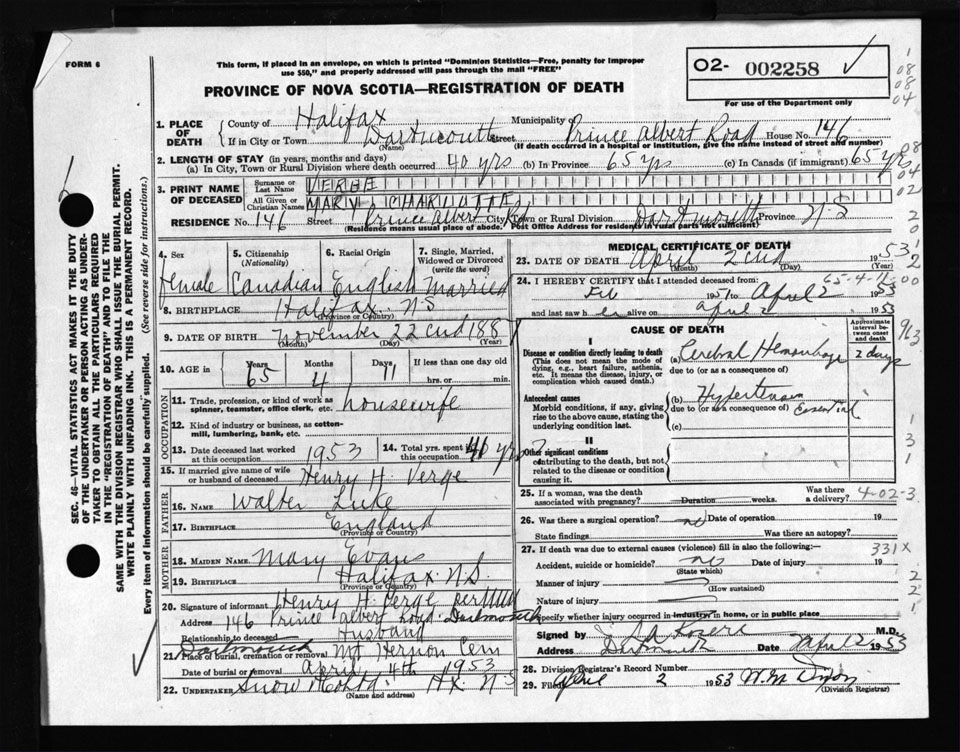 FORM 6
This form, if placed in an envelope, on which is printed "Dominion Statistics—Free, penalty for improper
use $50," and properly addressed will pass through the mail "FREE"
O2- 002258
For use of the Department only
PROVINCE OF NOVA SCOTIA—REGISTRATION OF DEATH
1. PLACE OF DEATH
County of Halifax Municipality of
If in City or Town Dartmouth Street Prince Albert Road House No. 146
(Name) (If death occurred in a hospital or institution, give the name instead of street and number)
2. LENGTH OF STAY (in years, months and days)
(a) In City, Town or Rural Division where death occurred 40 yrs (b) In Province 65 yrs (c) In Canada (if immigrant) 65 yrs
3. PRINT NAME OF DECEASED
Surname or Last Name VERGE
All Given or Christian Names MARY CHARLOTTE
RESIDENCE No. 146 Street Prince Albert Rd City, Town or Rural Division Dartmouth Province N.S
(Residence means usual place of abode. Post Office Address for residents in rural parts not sufficient)
4. Sex
Female
5. Citizenship (Nationality)
Canadian
6. Racial Origin
English
7. Single, Married, Widowed or Divorced (write the word)
Married
8. BIRTHPLACE Halifax N.S
(Province or Country)
9. DATE OF BIRTH November 22cnd 188
(Month) (Day) (Year)
10. AGE in Years 65 Months 4 Days 11 If less than one day old
hrs. or min.
OCCUPATION
11. Trade, profession, or kind of work as spinner, teamster, office clerk, etc. housewife
12. Kind of industry or business, as cotton-mill, lumbering, bank, etc.
13. Date deceased last worked at this occupation 1953
14. Total yrs. spent in this occupation 40 yrs
15. If married give name of wife or husband of deceased Henry H Verge
FATHER
16. NAME Walter Luke
17. BIRTHPLACE England
(Province or Country)
MOTHER
18. MAIDEN NAME Mary Evans
19. BIRTHPLACE Halifax N.S.
(Province or Country)
20. Signature of informant Henry H. Verge
Address 146 Prince Albert Road Dartmouth
Relationship to deceased Husband
21. Place of burial, cremation or removal Dartmouth Mt Hermon Cem
Date of burial or removal April 4th 1953
22. UNDERTAKER Snow & Co Ltd. Hx. N.S
(Name and address)
MEDICAL CERTIFICATE OF DEATH
23. DATE OF DEATH April 2cnd 1953
(Month) (Day) (Year)
24. I HEREBY CERTIFY that I attended deceased from: 65-4-11
Feb 1951 to April 2 1953
and last saw her alive on April 2 1953
CAUSE OF DEATH
Approximate interval between onset and death
I
Disease or condition directly leading to death
(This does not mean the mode of dying, e.g., heart failure, asthenia, etc. It means the disease, injury, or complication which caused death.)
(a) Cerebral Hemorrhage 2 days
due to (or as a consequence of)
Antecedent causes
Morbid conditions, if any, giving rise to the above cause, stating the underlying condition last.
(b) Hypertension
due to (or as a consequence of) Essential
(c)
II
Other significant conditions
contributing to the death, but not related to the disease or condition causing it.
25. If a woman, was the death associated with pregnancy? Duration weeks. Was there a delivery? 4-02-3
26. Was there a surgical operation? no Date of operation 19
State findings Was there an autopsy?
27. If death was due to external causes (violence) fill in also the following:— 331X
Accident, suicide or homicide? no Date of injury 19
(State which)
Manner of injury
(How sustained)
Nature of injury
Specify whether injury occurred in industry, in home, or in public place
Signed by M.D.
Address Dartmouth Date April 2 1953
28. Division Registrar's Record Number
29. Filed April 2 1953 W.M. Dixon
(Division Registrar)
SEC. 46—VITAL STATISTICS ACT MAKES IT THE DUTY
OF THE UNDERTAKER OR PERSON ACTING AS UNDER-
TAKER TO OBTAIN ALL THE PARTICULARS REQUIRED
IN THE "REGISTRATION OF DEATH" AND TO FILE THE
SAME WITH THE DIVISION REGISTRAR WHO SHALL ISSUE THE BURIAL PERMIT.
WRITE PLAINLY WITH UNFADING INK. THIS IS A PERMANENT RECORD.
Every item of information should be carefully supplied. (See reverse side for instructions.)